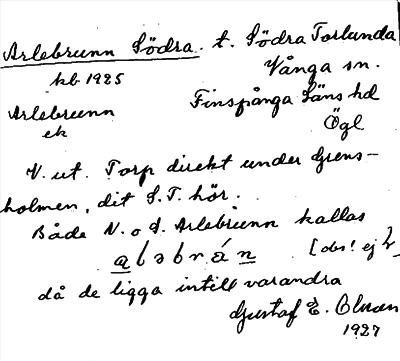 Arlebrunn Södra. t. Södra Torlunda
kb 1925 Vånga sn.
Arlebrunn Finspånga läns hd
ek Ögl
N. ut. Torp direkt under Grens-
holmen, dit S.T. hör.
Både N. o S. Arlebrunn kallas
aləbrán [obs! ej
då de ligga intill varandra
Gustaf E.
1927